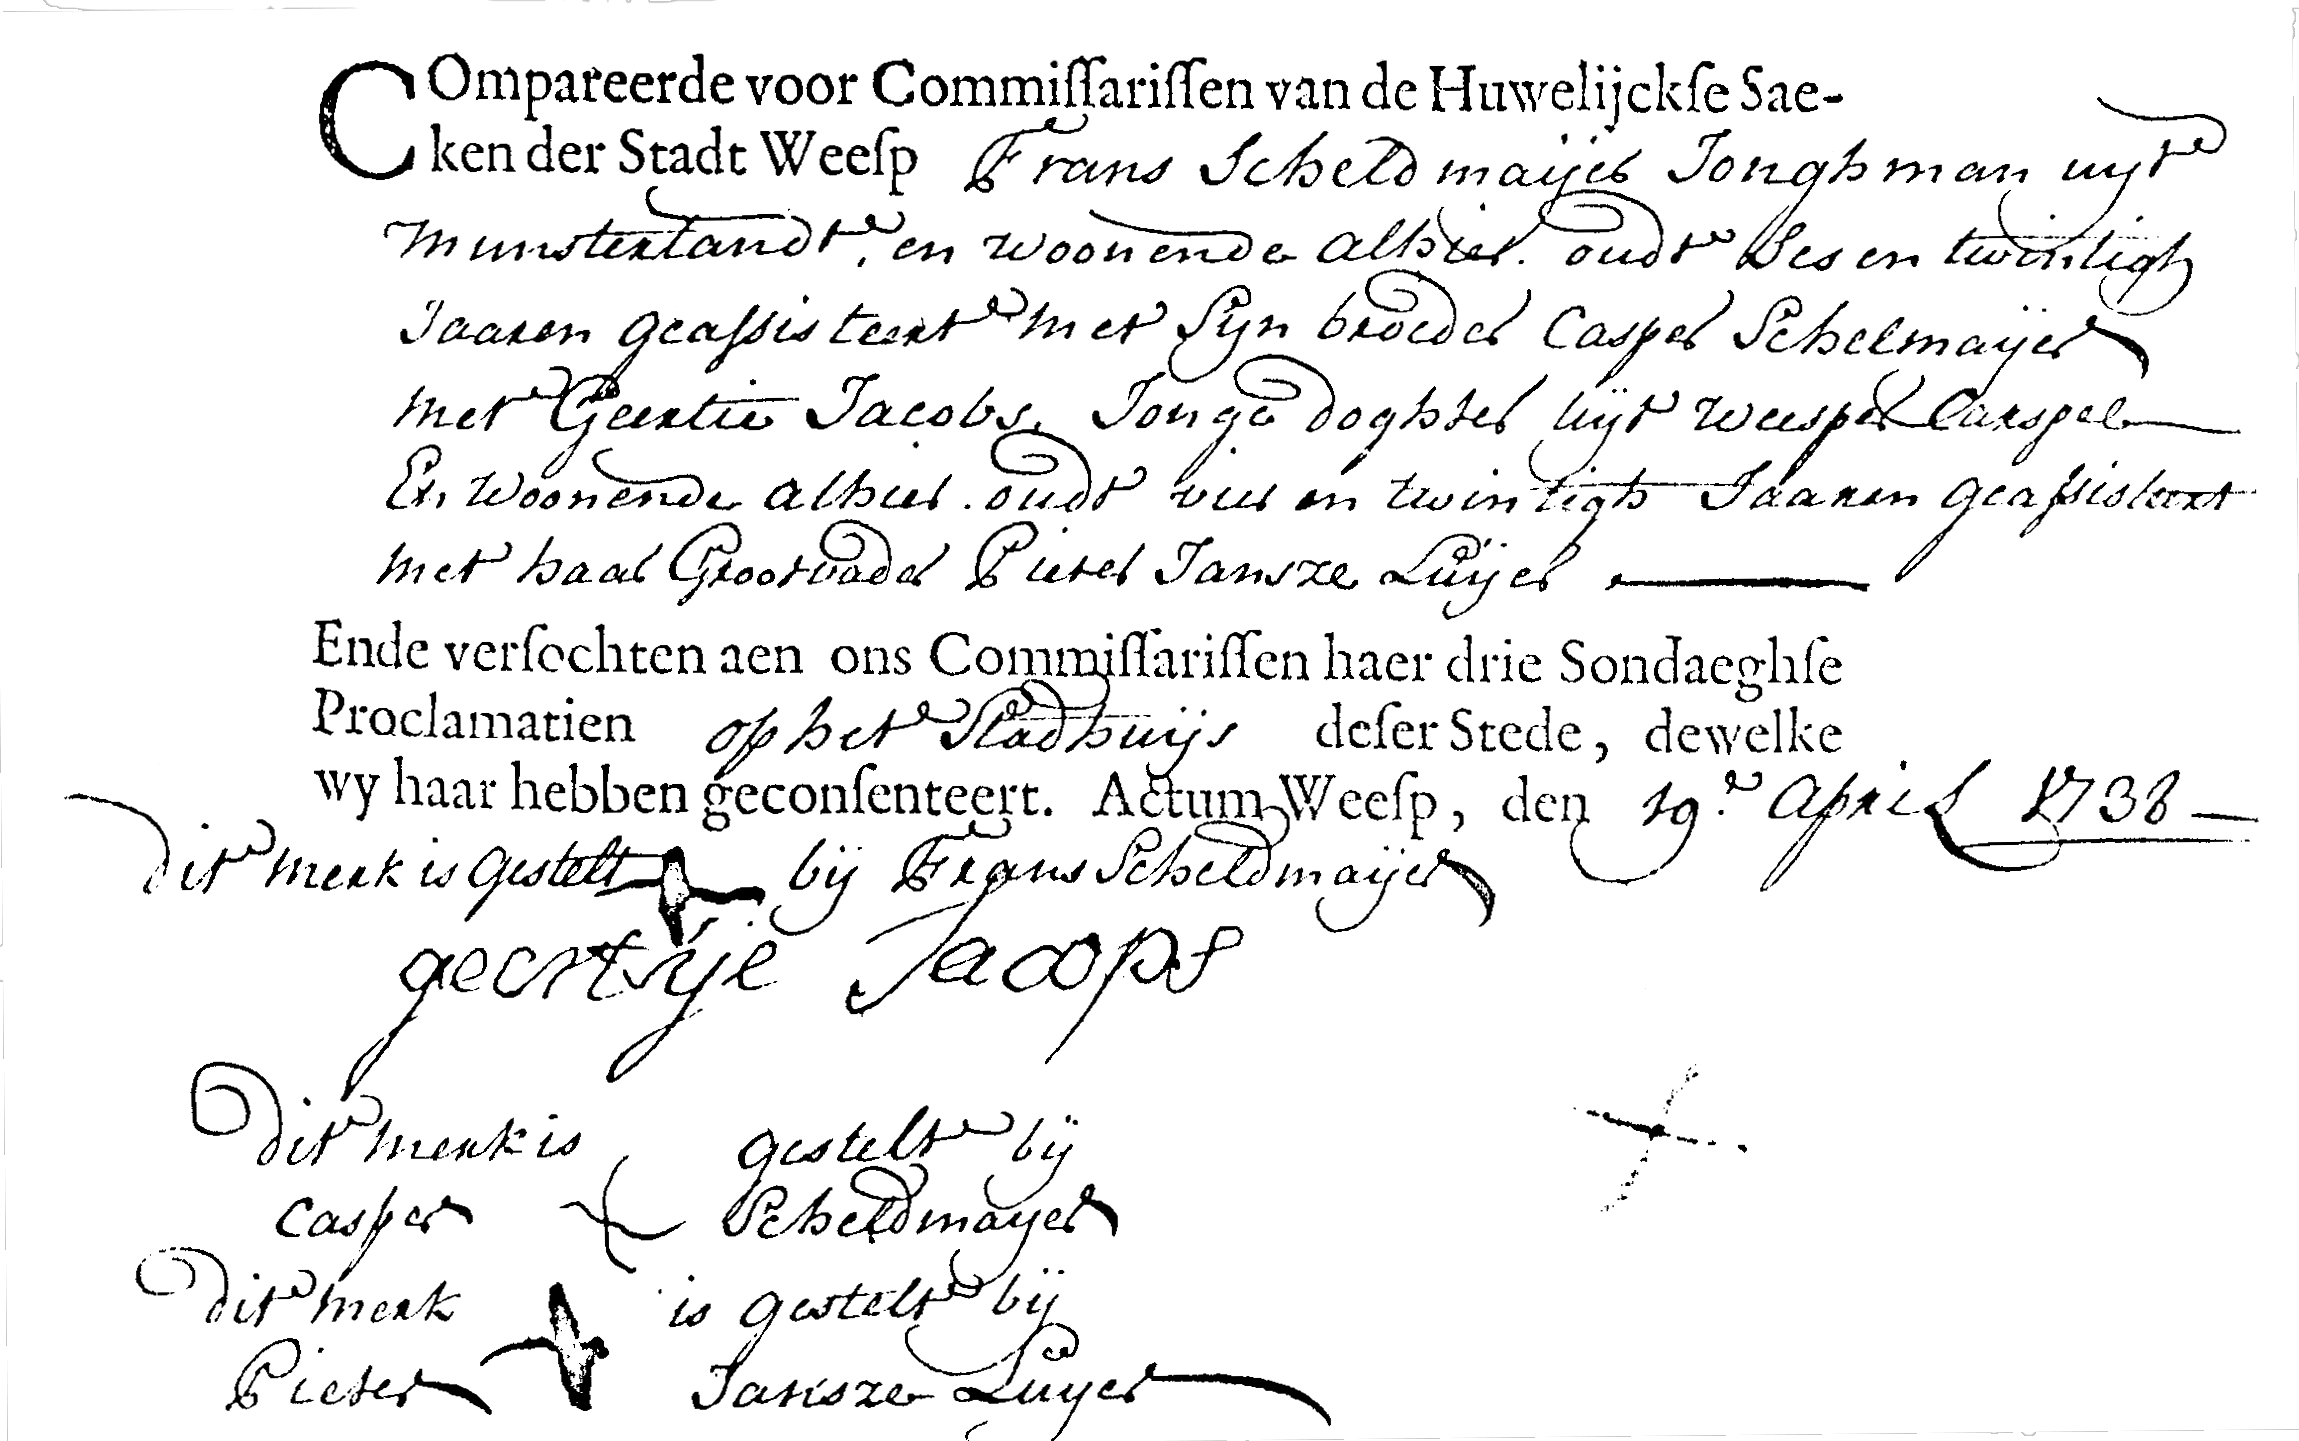 COmpareerde voor Commiſſariſſen van de Huwelijckſe Sae-
ken der Stadt Weeſp Frans Scheldmaijer Jonghman uyt
Munsterlandt, en woonende alhier. oudt Ses en twintigh
Jaaren geaſsisteert met Syn broeder Casper Schelmaijer
met Geertie Jacobs, Jonge doghter uijt weesper Carspel
En woonende alhier. oudt vier en twintigh Jaaren geaſsisteert
met haar Grootvader Pieter Jansze Luijer
Ende verſochten aen ons Commiſſariſſen haer drie Sondaeghſe
Proclamatien op het Stadhuijs deſer Stede, dewelke
wy haar hebben geconſenteert. Actum Weeſp, den 19.e April 1738
dit merk is gestelt bij Frans Scheldmaijer
geertije Jacops
dit merk is gestelt bij
Casper Scheldmayer
dit merk is gestelt bij
Pieter Jansze Luijer